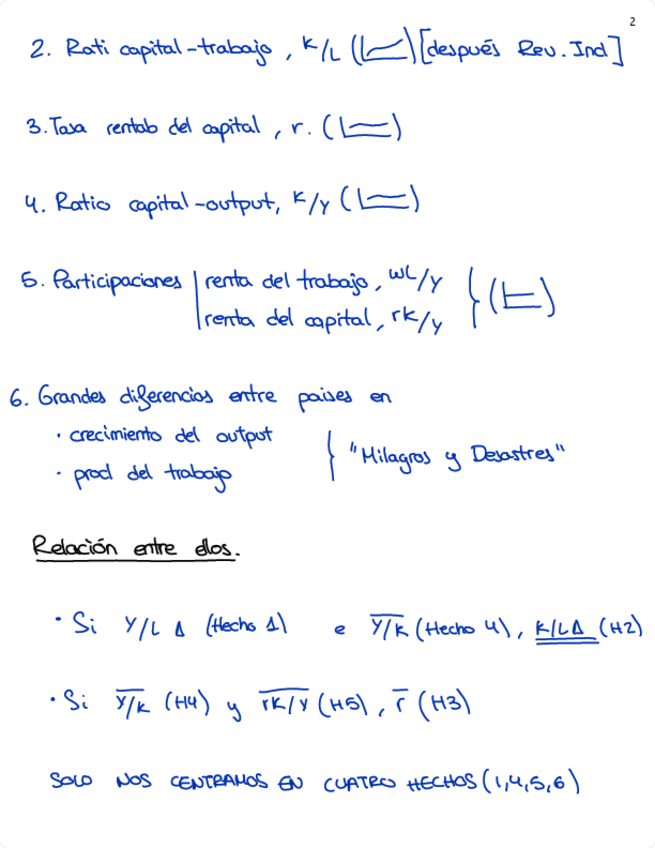 2
2. Rati capital-trabajo, K/L ( ) [después Rev. Ind]
3. Tasa rentab del capital, r. ( )
4. Ratio capital-output, K/Y ( )
5. Participaciones | renta del trabajo, WL/Y
renta del capital, rK/Y } ( )
6. Grandes diferencias entre paises en
· crecimiento del output
· prod del trabajo } "Milagros y Desastres"
Relación entre ellos.
· Si Y/L Δ (Hecho 1) e Y/K (Hecho 4), K/LΔ (H2)
· Si Y/K (H4) y rK/Y (H5), r (H3)
SOLO NOS CENTRAMOS EN CUATRO HECHOS (1,4,5,6)